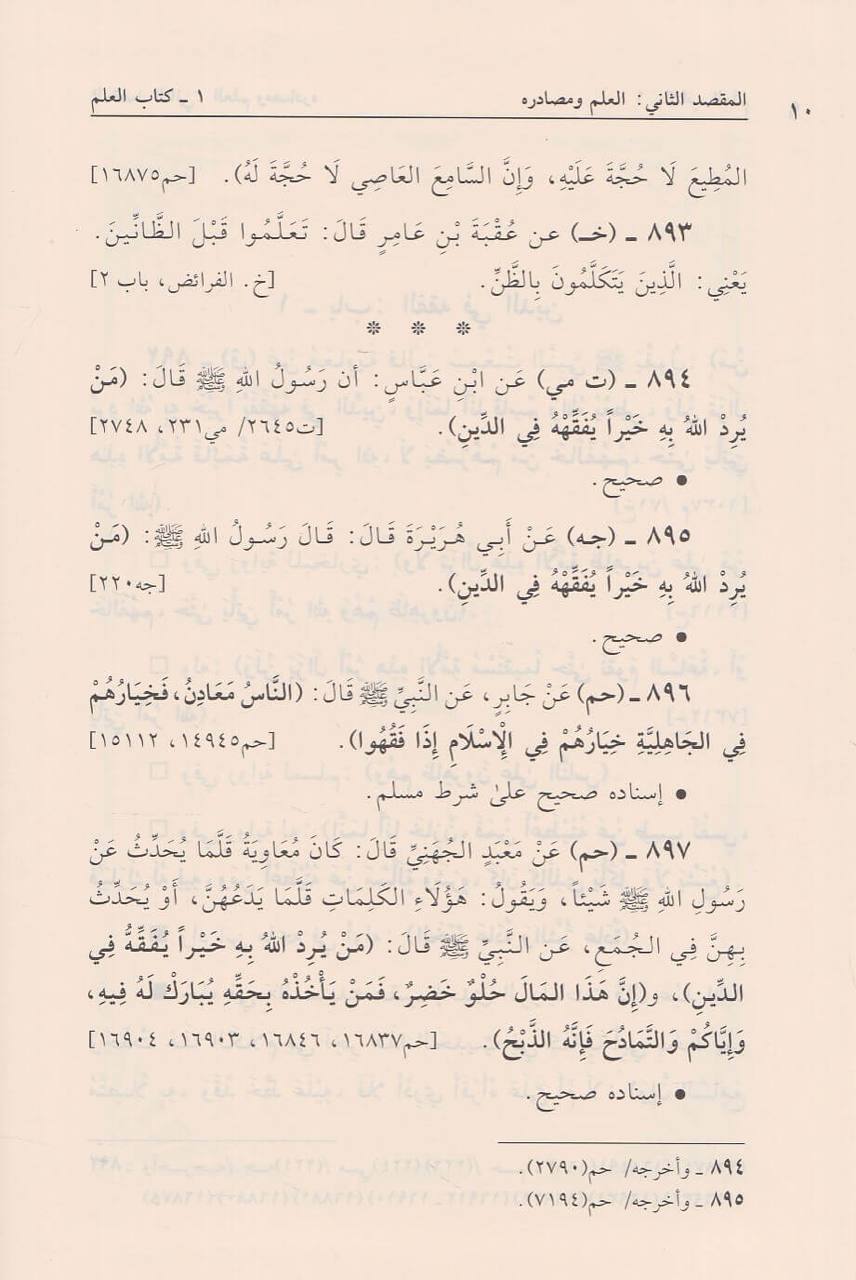 المقصد الثاني: العلم ومصادره ١ ـ كتاب العلم
١٠
المُطِيعَ لَا حُجَّةَ عَلَيْهِ، وَإِنَّ السَّامِعَ العَاصِي لَا حُجَّةَ لَهُ). [حم١٦٨٧٥]
٨٩٣ ـ (خـ) عن عُقْبَةَ بْنِ عَامِرٍ قَالَ: تَعَلَّمُوا قَبْلَ الظَّانِّينَ.
يَعْنِي: الَّذِينَ يَتَكَلَّمُونَ بِالظَّنِّ. [خ. الفرائض، باب ٢]
* * *
٨٩٤ ـ (ت مي) عَن ابْنِ عَبَّاسٍ: أن رَسُولُ اللهِ ﷺ قَالَ: (مَنْ
يُرِدْ اللهُ بِهِ خَيْراً يُفَقِّهْهُ فِي الدِّينِ). [ت٢٦٤٥/ مي٢٣١، ٢٧٤٨]
• صحيح.
٨٩٥ ـ (جه) عَنْ أَبِي هُرَيْرَةَ قَالَ: قَالَ رَسُولُ اللهِ ﷺ: (مَنْ
يُرِدْ اللهُ بِهِ خَيْراً يُفَقِّهْهُ فِي الدِّينِ). [جه٢٢٠]
• صحيح.
٨٩٦ ـ (حم) عَنْ جَابِرٍ، عَن النَّبِيِّ ﷺ قَالَ: (النَّاسُ مَعَادِنُ، فَخِيَارُهُمْ
فِي الجَاهِلِيَّةِ خِيَارُهُمْ فِي الإِسْلَامِ إِذَا فَقُهُوا). [حم١٤٩٤٥، ١٥١١٢]
• إسناده صحيح علىٰ شرط مسلم.
٨٩٧ ـ (حم) عَنْ مَعْبَدٍ الجُهَنِيِّ قَالَ: كَانَ مُعَاوِيَةُ قَلَّمَا يُحَدِّثُ عَنْ
رَسُولِ اللهِ ﷺ شَيْئاً، وَيَقُولُ: هَؤُلَاءِ الكَلِمَاتِ قَلَّمَا يَدَعُهُنَّ، أَوْ يُحَدِّثُ
بِهِنَّ فِي الجُمَعِ، عَن النَّبِيِّ ﷺ قَالَ: (مَنْ يُرِدْ اللهُ بِهِ خَيْراً يُفَقِّهُّ فِي
الدِّينِ)، و(إِنَّ هَذَا المَالَ حُلْوٌ خَضِرٌ، فَمَنْ يَأْخُذْهُ بِحَقِّهِ يُبَارَكْ لَهُ فِيهِ،
وَإِيَّاكُمْ وَالتَّمَادُحَ فَإِنَّهُ الذَّبْحُ). [حم١٦٨٣٧، ١٦٨٤٦، ١٦٩٠٣، ١٦٩٠٤]
• إسناده صحيح.
٨٩٤ ـ وأخرجه/ حم(٢٧٩٠).
٨٩٥ ـ وأخرجه/ حم(٧١٩٤).